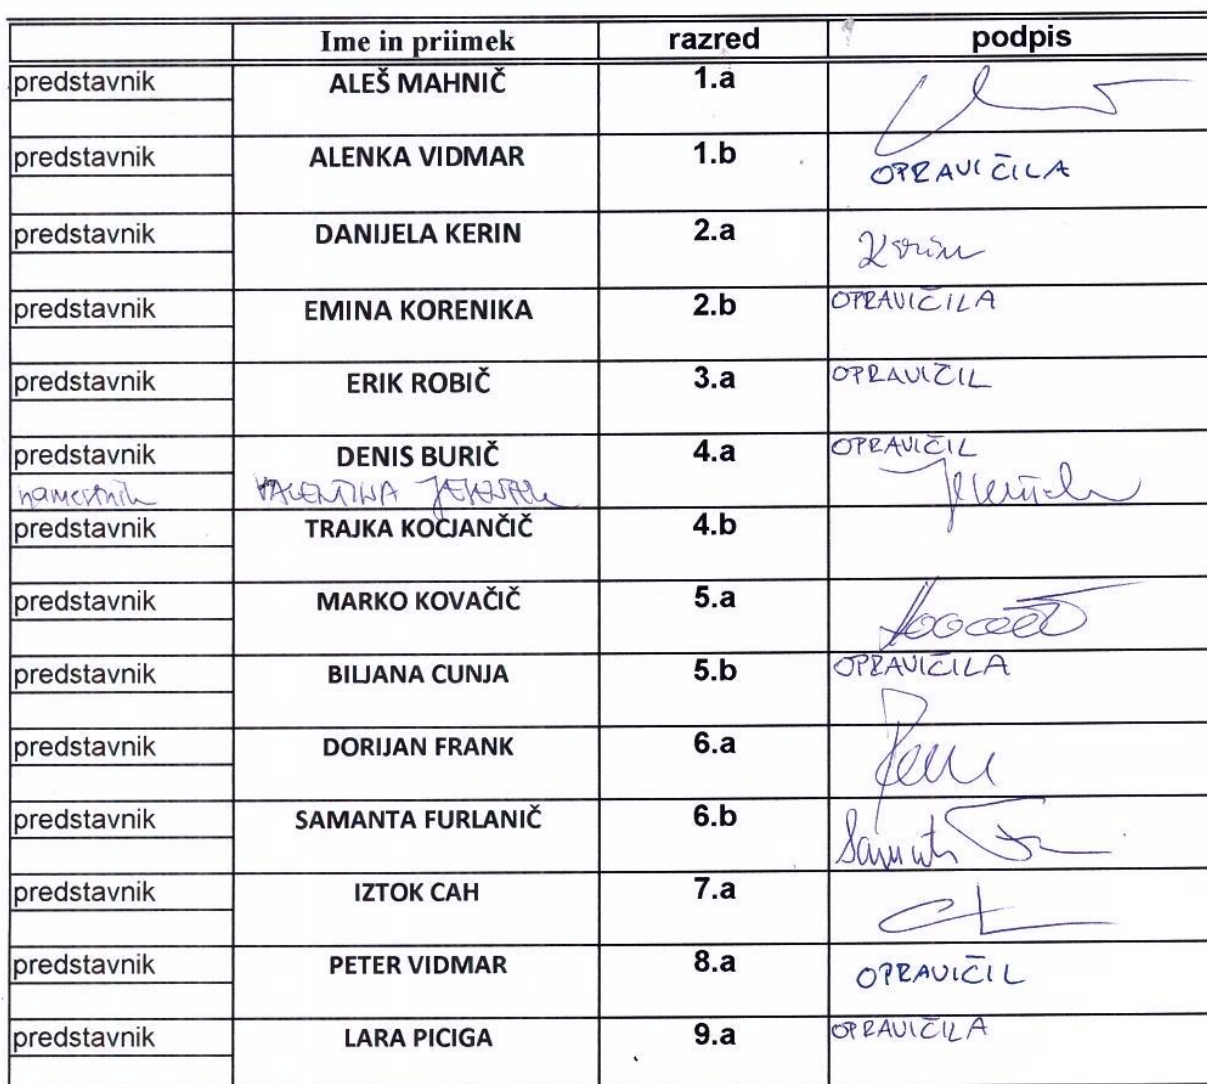 Ime in priimek razred podpis
predstavnik ALEŠ MAHNIČ 1.a
predstavnik ALENKA VIDMAR 1.b OPRAVIČILA
predstavnik DANIJELA KERIN 2.a Kerin
predstavnik EMINA KORENIKA 2.b OPRAVIČILA
predstavnik ERIK ROBIČ 3.a OPRAVIČIL
predstavnik DENIS BURIČ 4.a OPRAVIČIL
namestnik VALENTINA
predstavnik TRAJKA KOCJANČIČ 4.b
predstavnik MARKO KOVAČIČ 5.a
predstavnik BILJANA CUNJA 5.b OPRAVIČILA
predstavnik DORIJAN FRANK 6.a
predstavnik SAMANTA FURLANIČ 6.b
predstavnik IZTOK CAH 7.a
predstavnik PETER VIDMAR 8.a OPRAVIČIL
predstavnik LARA PICIGA 9.a OPRAVIČILA